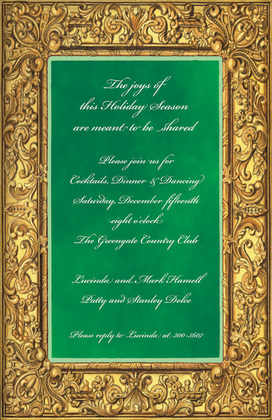 The joys of
this Holiday Season
are meant to be shared
Please join us for
Cocktails, Dinner & Dancing
Saturday, December fifteenth
eight o'clock
The Greengate Country Club
Lucinda and Mark Hamell
Patty and Stanley Dolce
Please reply to Lucinda at 300-3602